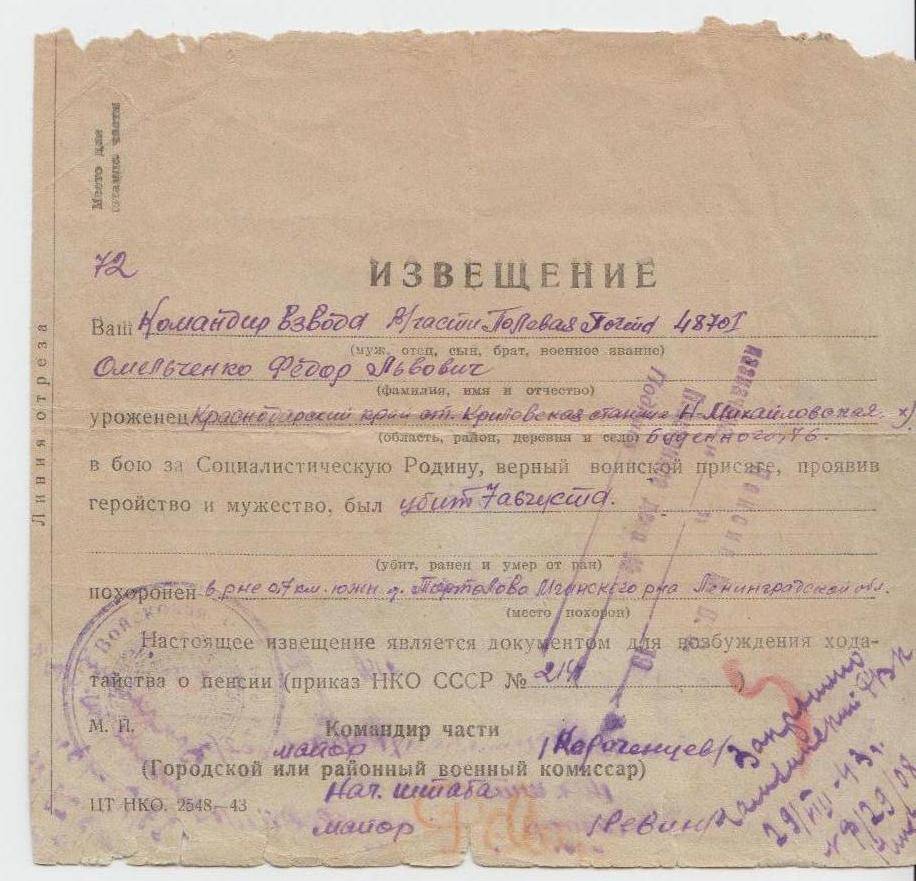 Место для
штампа части
Линия отреза
72
ИЗВЕЩЕНИЕ
Ваш Командир взвода в/части Полевая Почта 48701
(муж, отец, сын, брат, военное звание)
Омельченко Фёдор Львович
(фамилия, имя и отчество)
уроженец Краснодарский край ст. Крыловская станица Н-Михайловская х)
(область, район, деревня и село) буденного, 76.
в бою за Социалистическую Родину, верный воинской присяге, проявив
геройство и мужество, был убит 7 августа.
(убит, ранен и умер от ран)
похоронен в р-не 0,7 км. южн. д. Портолово Мгинского р-на Ленинградской обл.
(место похорон)
Настоящее извещение является документом для возбуждения хода-
тайства о пенсии (приказ НКО СССР № 214)
М. П.
Командир части
майор /Караченцев/
(Городской или районный военный комиссар)
Нач. штаба
ЦТ НКО. 2548—43
майор /Левин/
Войсковая
29/VIII-43г.